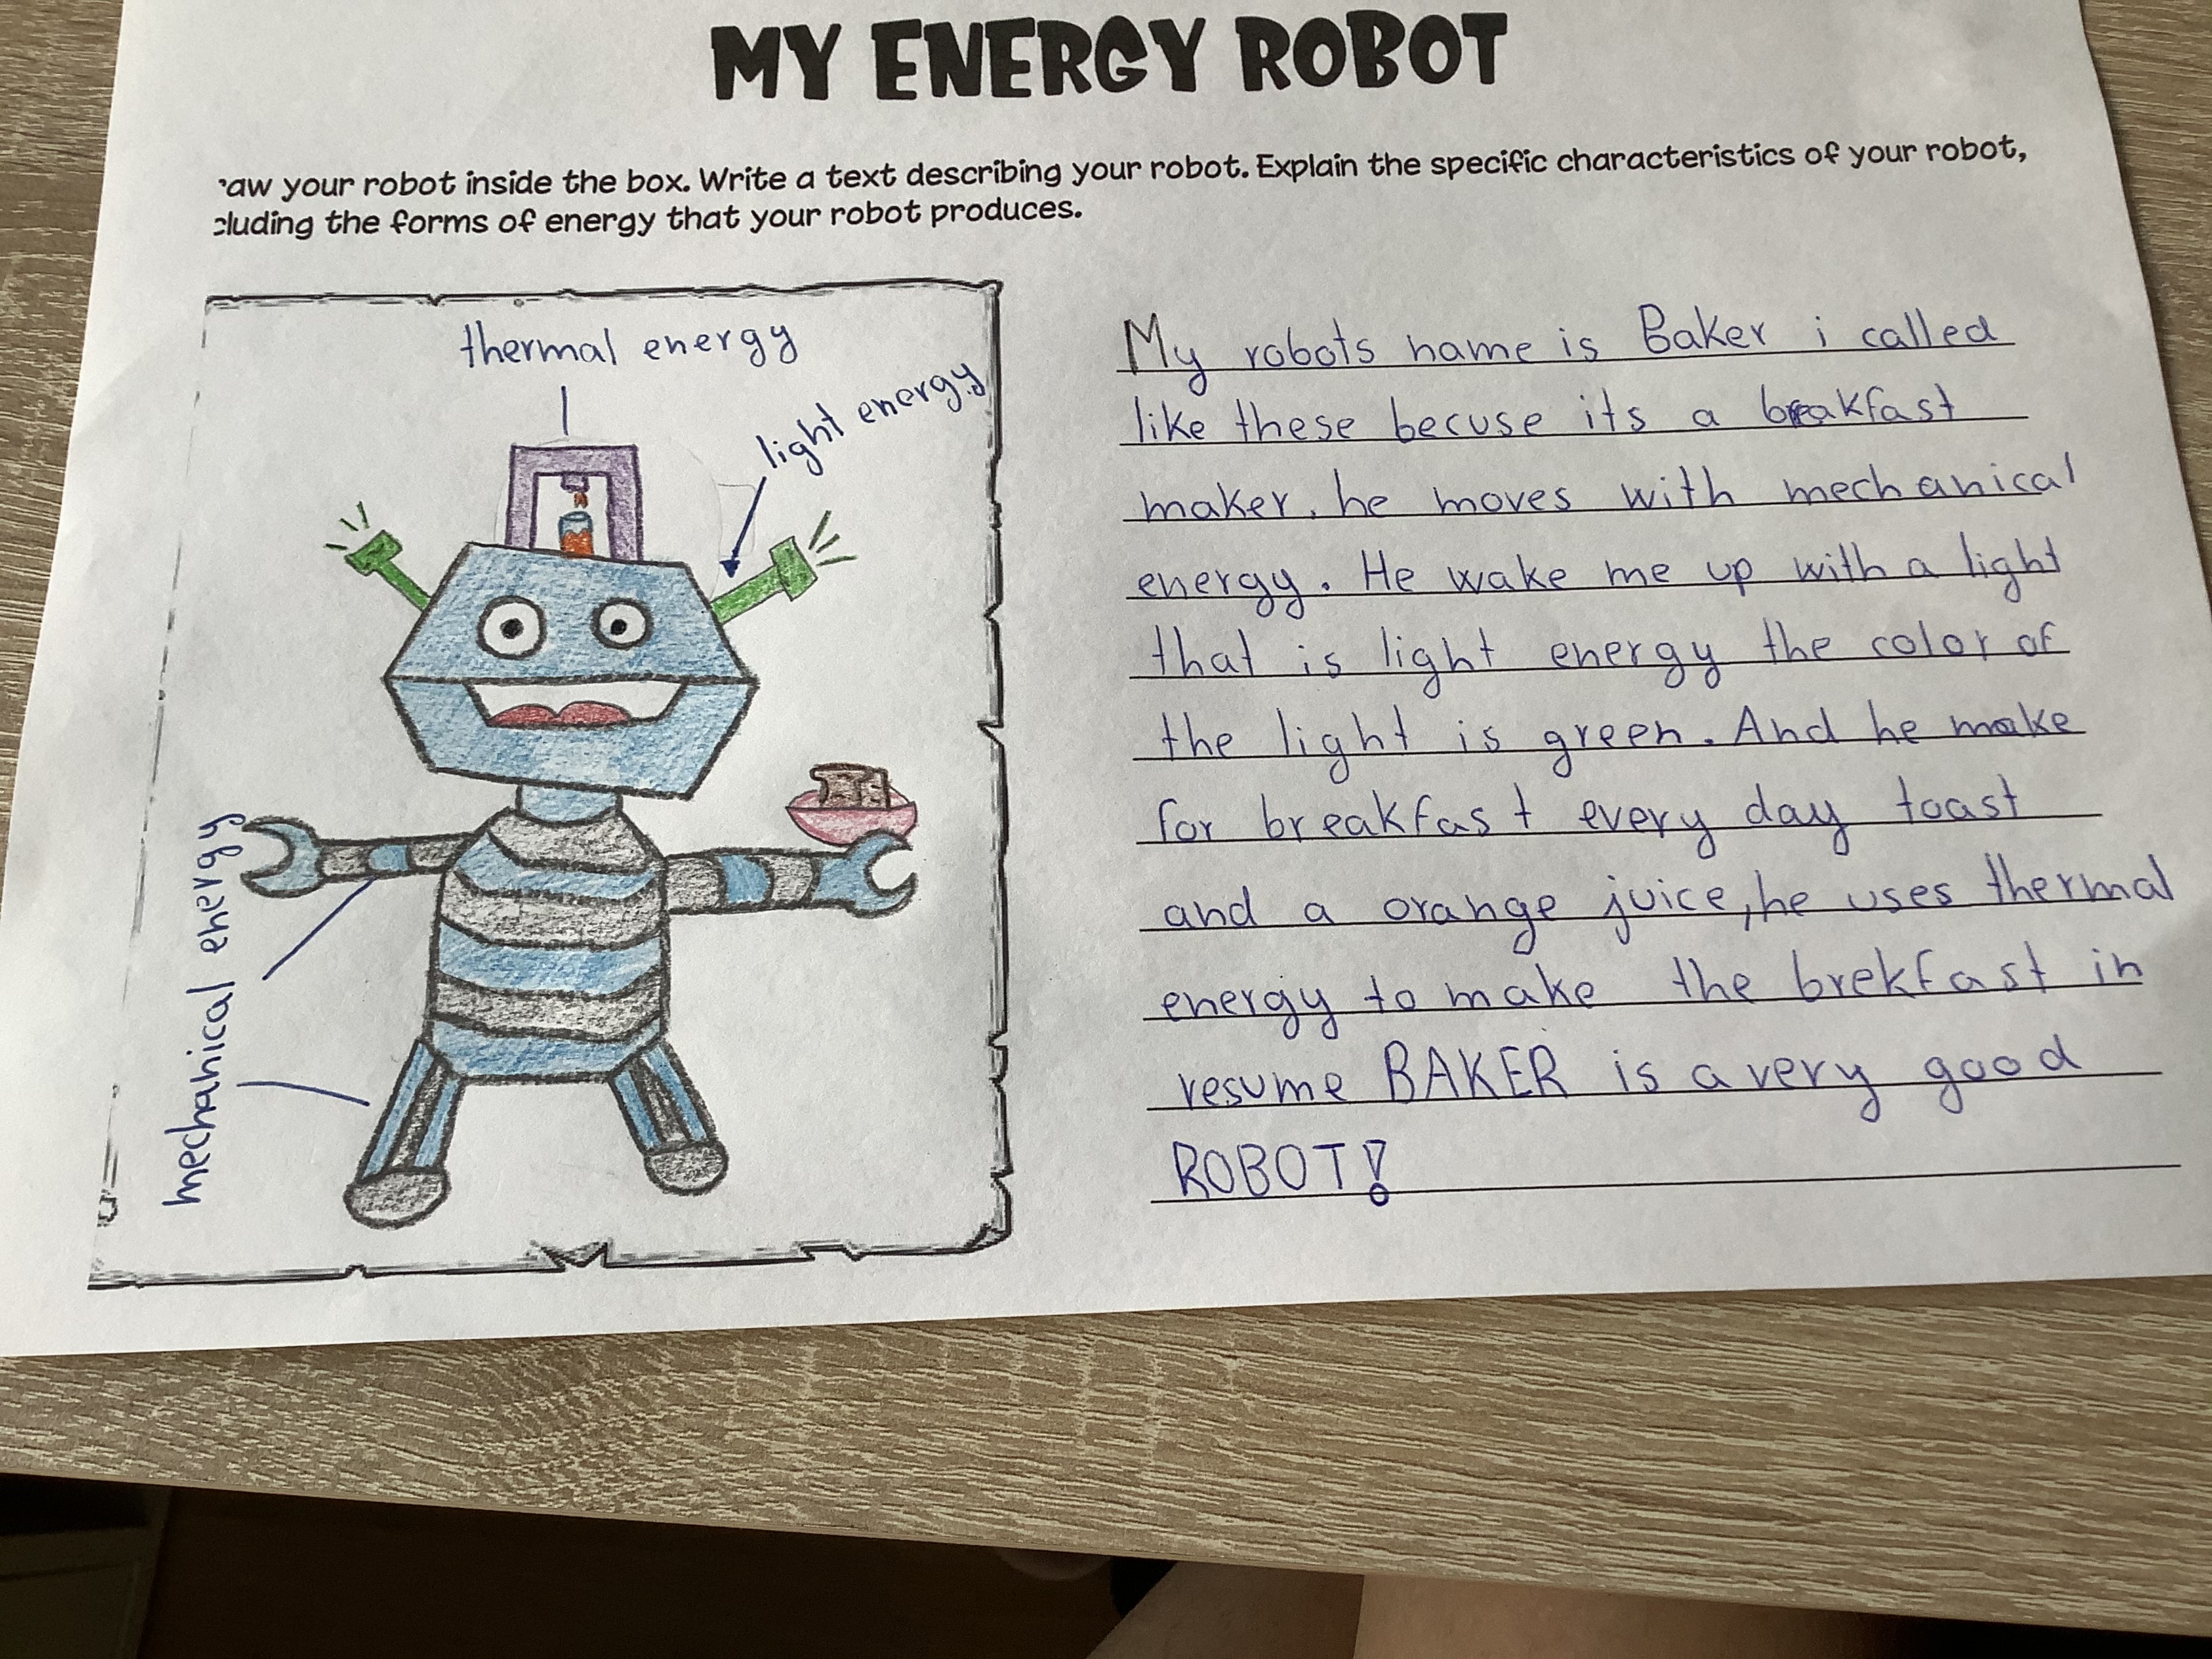 MY ENERGY ROBOT
aw your robot inside the box. Write a text describing your robot. Explain the specific characteristics of your robot,
cluding the forms of energy that your robot produces.
thermal energy
light energy
mechanical energy
My robots name is Baker i called
like these becuse its a breakfast
maker. he moves with mechanical
energy. He wake me up with a light
that is light energy the color of
the light is green. And he make
for breakfast every day toast
and a orange juice, he uses thermal
energy to make the brekfast in
resume BAKER is a very good
ROBOT!